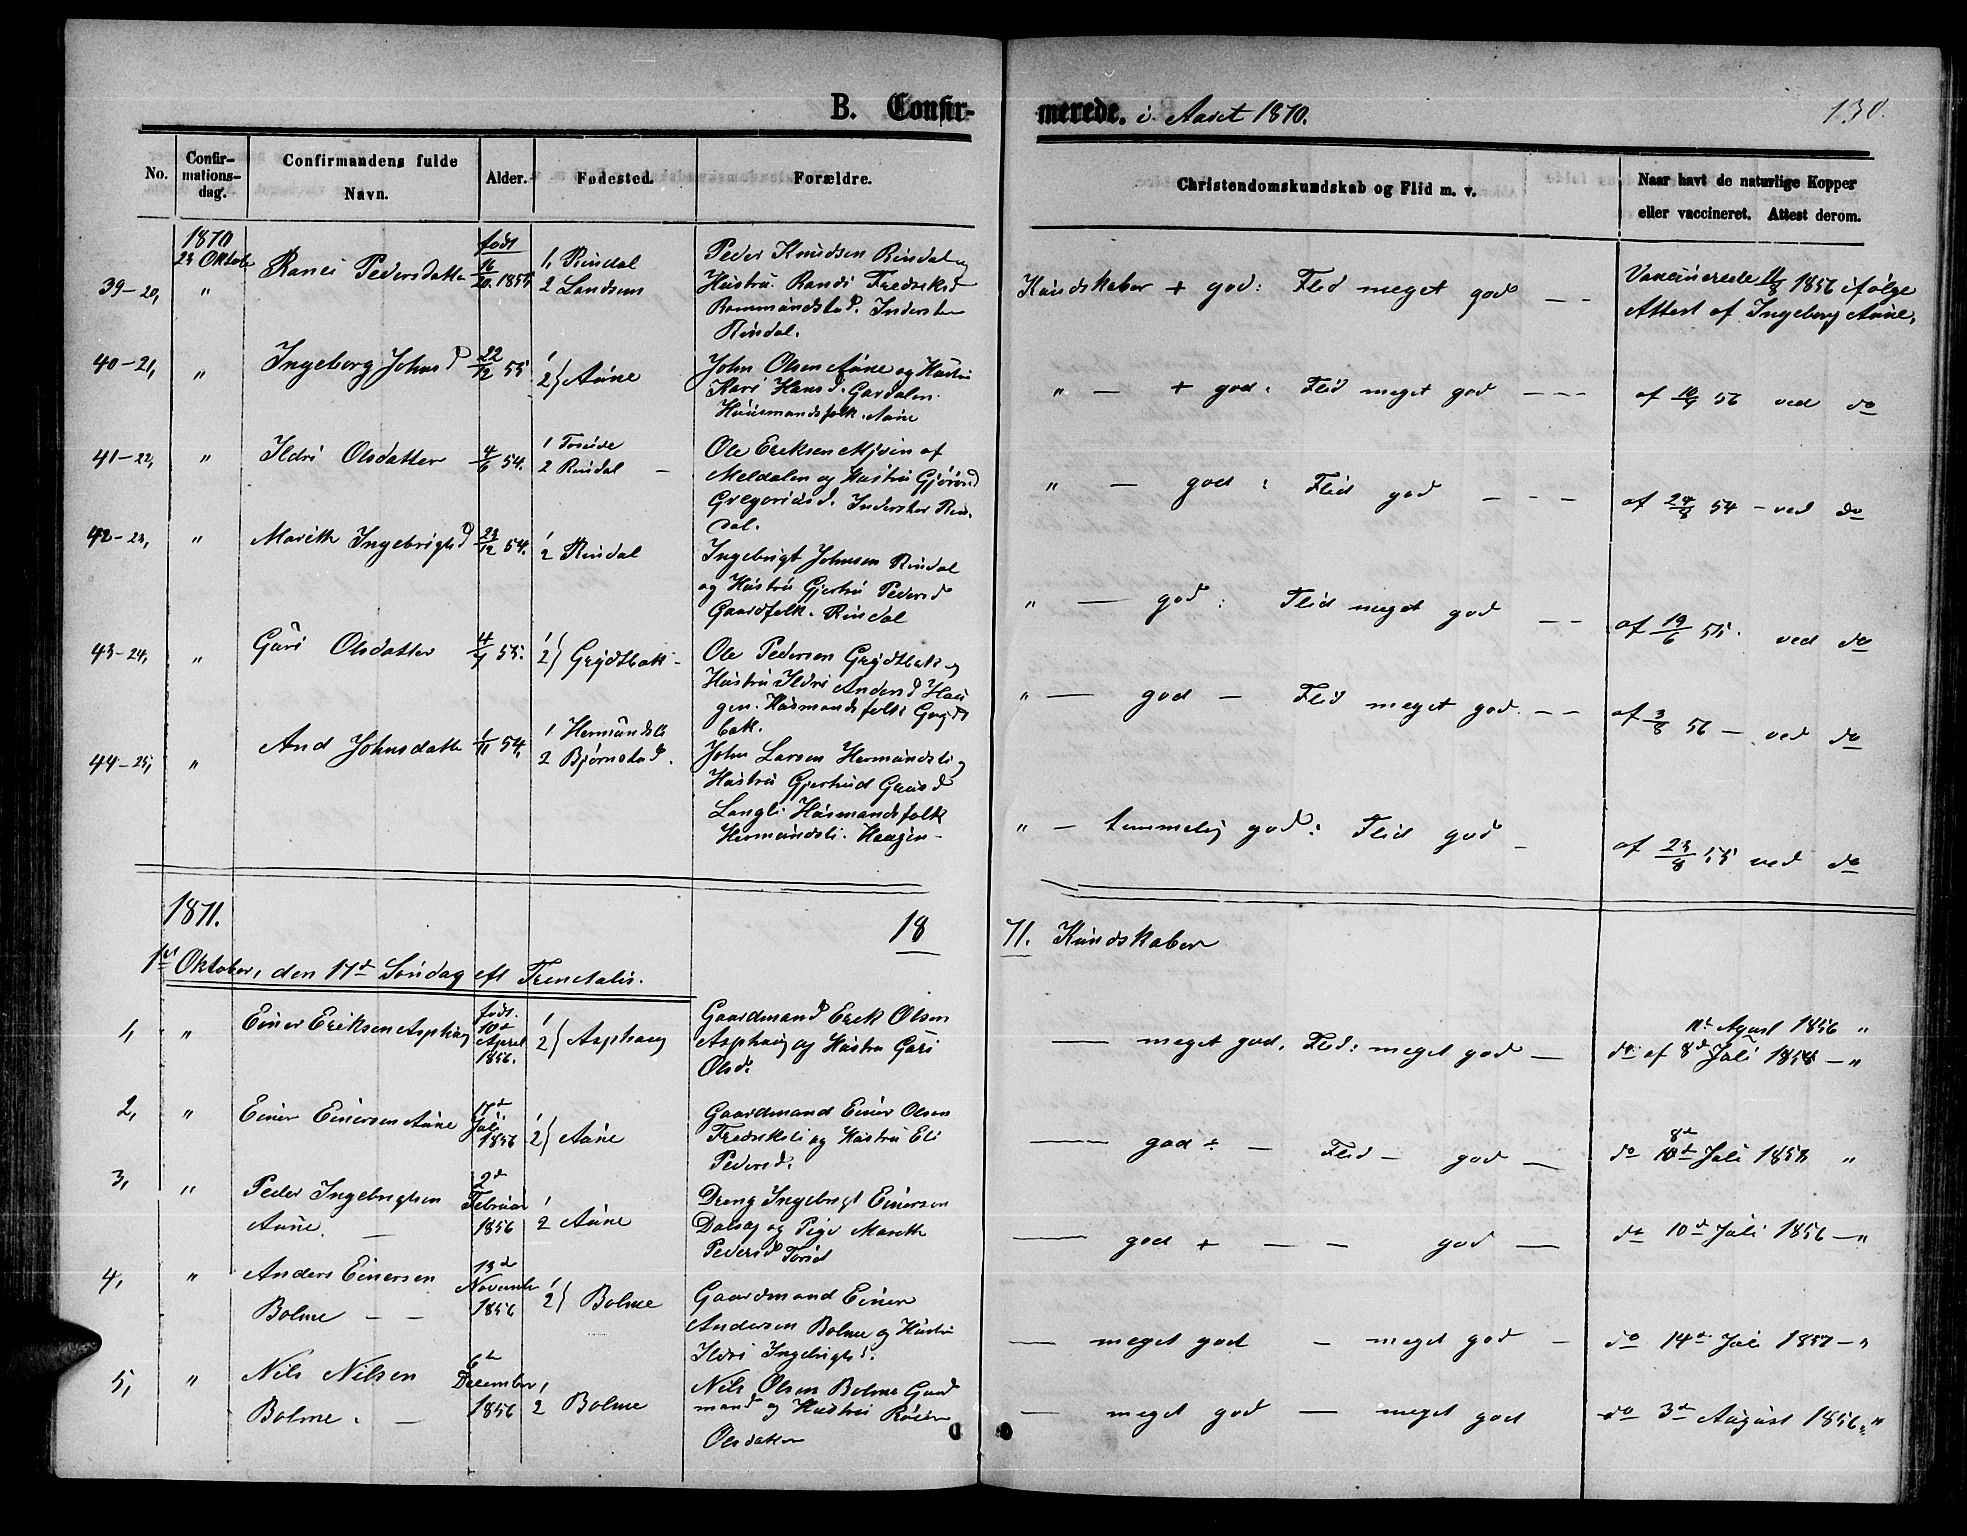 B. Confirmerede. i Aaret 1870.
130.
No.
Confirmationsdag.
Confirmandens fulde Navn.
Alder.
Fødested.
Forældre.
Christendomskundskab og Flid m. v.
Naar havt de naturlige Kopper
eller vaccineret. Attest derom.
1870
23 Oktob
39-20, " Pedersdatter født 16/20 1855
1, Rindal
2 Landsem
Peder Knudsen Rindal og
Hustru Randi Fredriksd
Inderst
Rindal.
Kundskaber + god: Flid meget god - -
Vaccinerede 1856 ifølge
Attest af Ingeborg Aune,
40-21, " Ingeborg Johnsd 22/12 55
1
2} Aune
John Olsen Aune og Hustru
Kari Hansd. Gardalen.
Huusmandsfolk. Aune
" — + god: Flid meget god - - -
af 56 ved do
41-22, " Ildri Olsdatter 4/6 54.
1
2 Rindal -
Ole Eriksen Mjoen af
Meldalen og Hustru
Gregoriusd. Inderster Rin-
dal.
" — god: Flid god - - -
af 24/8 54 - ved do
42-23, " Marith Ingebrigtsd 23/12 54.
1
2 Rindal
Ingebrigt Johnsen Rindal
og Hustru Gjertru Pedersd
Gaardfolk. Rindal
" — god: Flid meget god - -
af 19/6 55. ved do
43-24, " Guri Olsdatter 55.
1
2} Grydtbak -
Ole Pedersen Grydtbak og
Hustru Ildri Andersd Hau
gen. Husmandsfolk Grydt
bak.
" — god - Flid meget god. - -
af 3/8 56 - ved do
44-25, " And Johnsdatter 1/11 54,
1 Hermundsli
2 Bjørnstad.
John Larsen Hermundsli og
Hustru Gjertrud
Langli Husmandsfolk
Hermundsli. Haugen -
" - temmelig god: Flid god -
af 23/8 55 ved do
1871.
18 71. Kundskaber
1ste Oktober, den 17de Søndag eft Trinitatis.
1, " Einer Eriksen Asphaug
født.
10de
April
1856.
1
2} Asphaug
Gaardmand Erik Olsen
Asphaug og Hustru Guri
Olsd.
— meget god, Flid: meget god —
1856 "
do af 8d Juli 1858 - "
2, " Einer Einersen Aune
17de
Juli
1856
1
2} Aune
Gaardmand Einer Olsen
Fredriksli og Hustru Eli
Pedersd.
— god ÷ - Flid - god —
8d
do Juli 1857 "
3, " Peder Ingebrigtsen
Aune. —
2de
Februar
1856
1
2 Aune
Dreng Ingebrigt Einersen
Dalsag og Pige Marith
Pedersd
— god + - - god —
do 10d Juli 1856 - "
4, " Anders Einersen
Bolme - -
13de
November
1856
1
2} Bolme
Gaardmand Einer
Andersen Bolme og Hustru
Ildri Ingebrigtsd.
— meget god - meget god -
do 14d Juli 1857 - "
5, " Nils Nilsen
Bolme. -
6te
December
1856
1
2 Bolme
Nils Olsen Bolme Gaard
mand og Hustru
Olsdatter
— meget god — meget god
do 3d August 1856 "